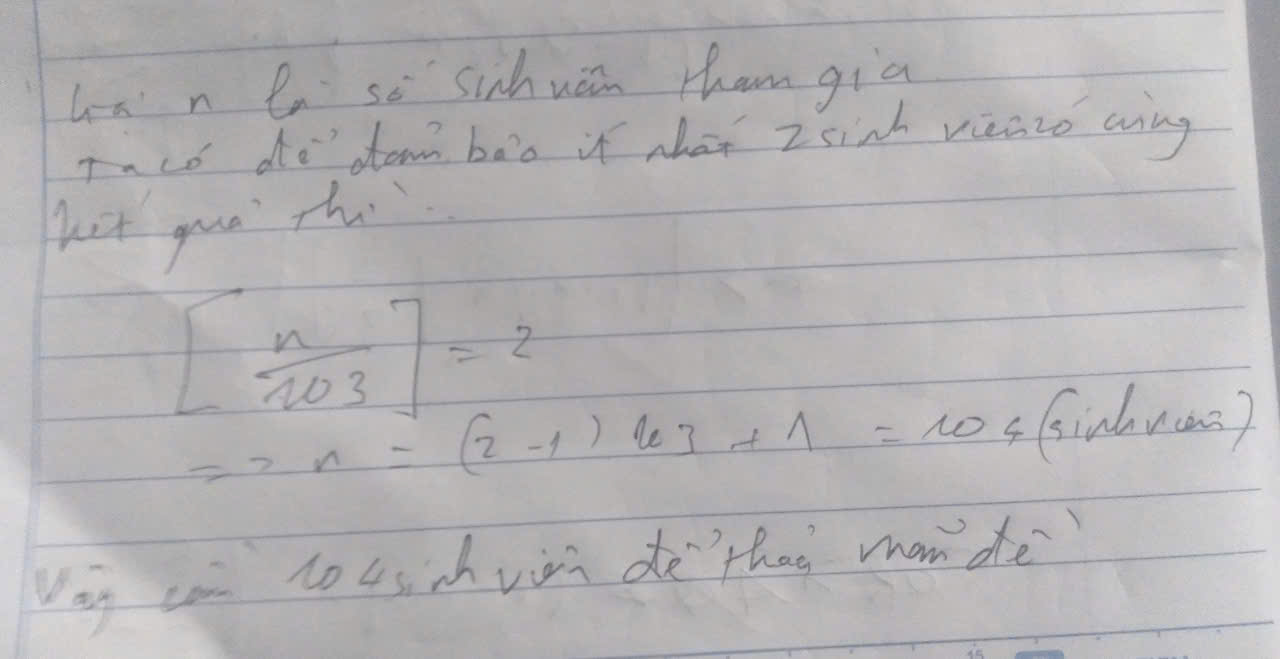 Gọi n là số sinh viên tham gia
Ta có để đảm bảo ít nhất 2 sinh viên có cùng
kết quả thì
[n/103] = 2
=> n = (2-1) 103 + 1 = 104 (sinh viên)
Vậy cần 104 sinh viên để thoả mãn đề
15